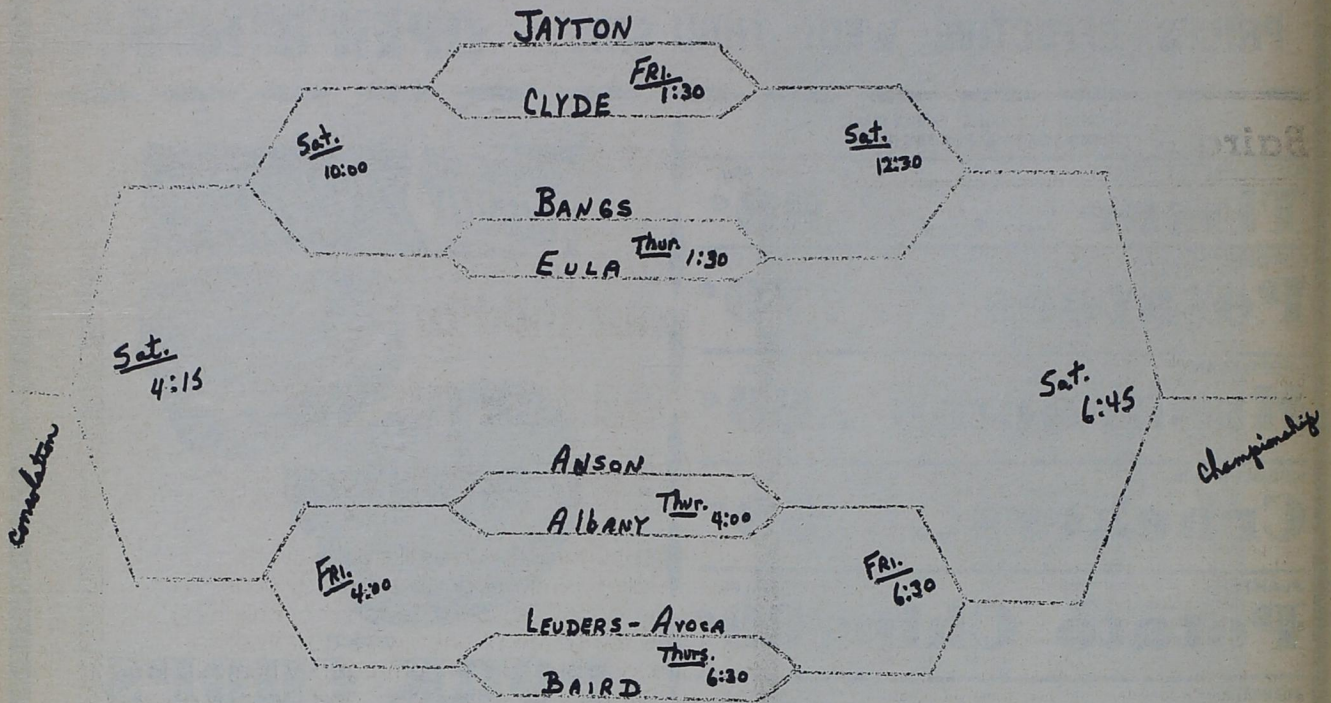 JAYTON
FRI.
1:30
CLYDE
Sat.
10:00
Sat.
12:30
BANGS
EULA Thur. 1:30
Sat.
4:15
Sat.
6:45
consolation
championship
ANSON
AlbANY Thur. 4:00
FRI.
4:00
FRI.
6:30
LEUDERS - AVOCA
Thurs.
6:30
BAIRD